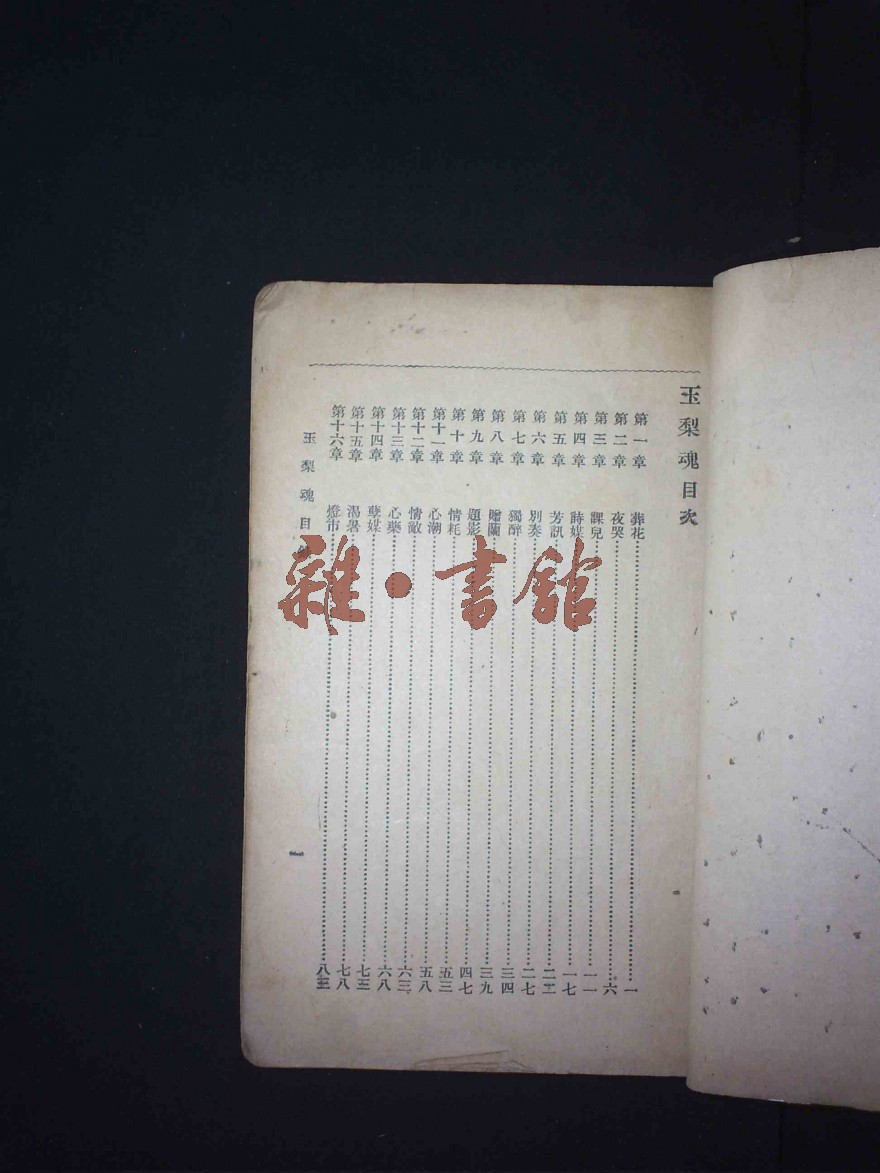 玉梨魂目次
第一章 葬花 一
第二章 夜哭 六
第三章 課兒 一一
第四章 詩媒 一七
第五章 芳訊 二二
第六章 別奏 二七
第七章 獨醉 三四
第八章 贈蘭 三九
第九章 題影 四七
第十章 情耗 五三
第十一章 心潮 五八
第十二章 情敵 六三
第十三章 心藥 六八
第十四章 孽媒 七三
第十五章 渴暑 七八
第十六章 燈市 八三
玉梨魂目
一
雜·書館